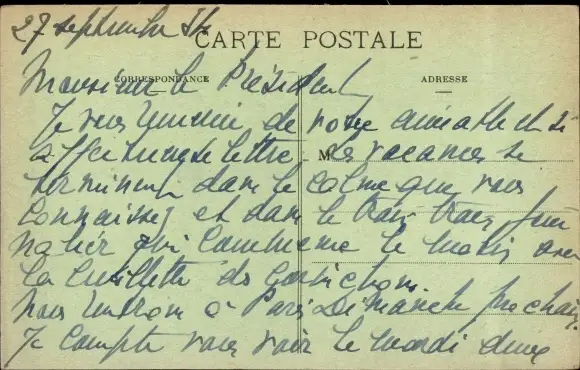 27 septembre 54
CARTE POSTALE
CORRESPONDANCE
ADRESSE
Monsieur le Président
Je vous remercie de votre aimable et si
affectueuse lettre. Les vacances se
M
terminent dans le calme que vous
connaissez et dans le train train
qui commence le matin avec
la cueillette des cornichons.
Nous rentrons à Paris Dimanche prochain.
Je compte vous voir le mardi deux